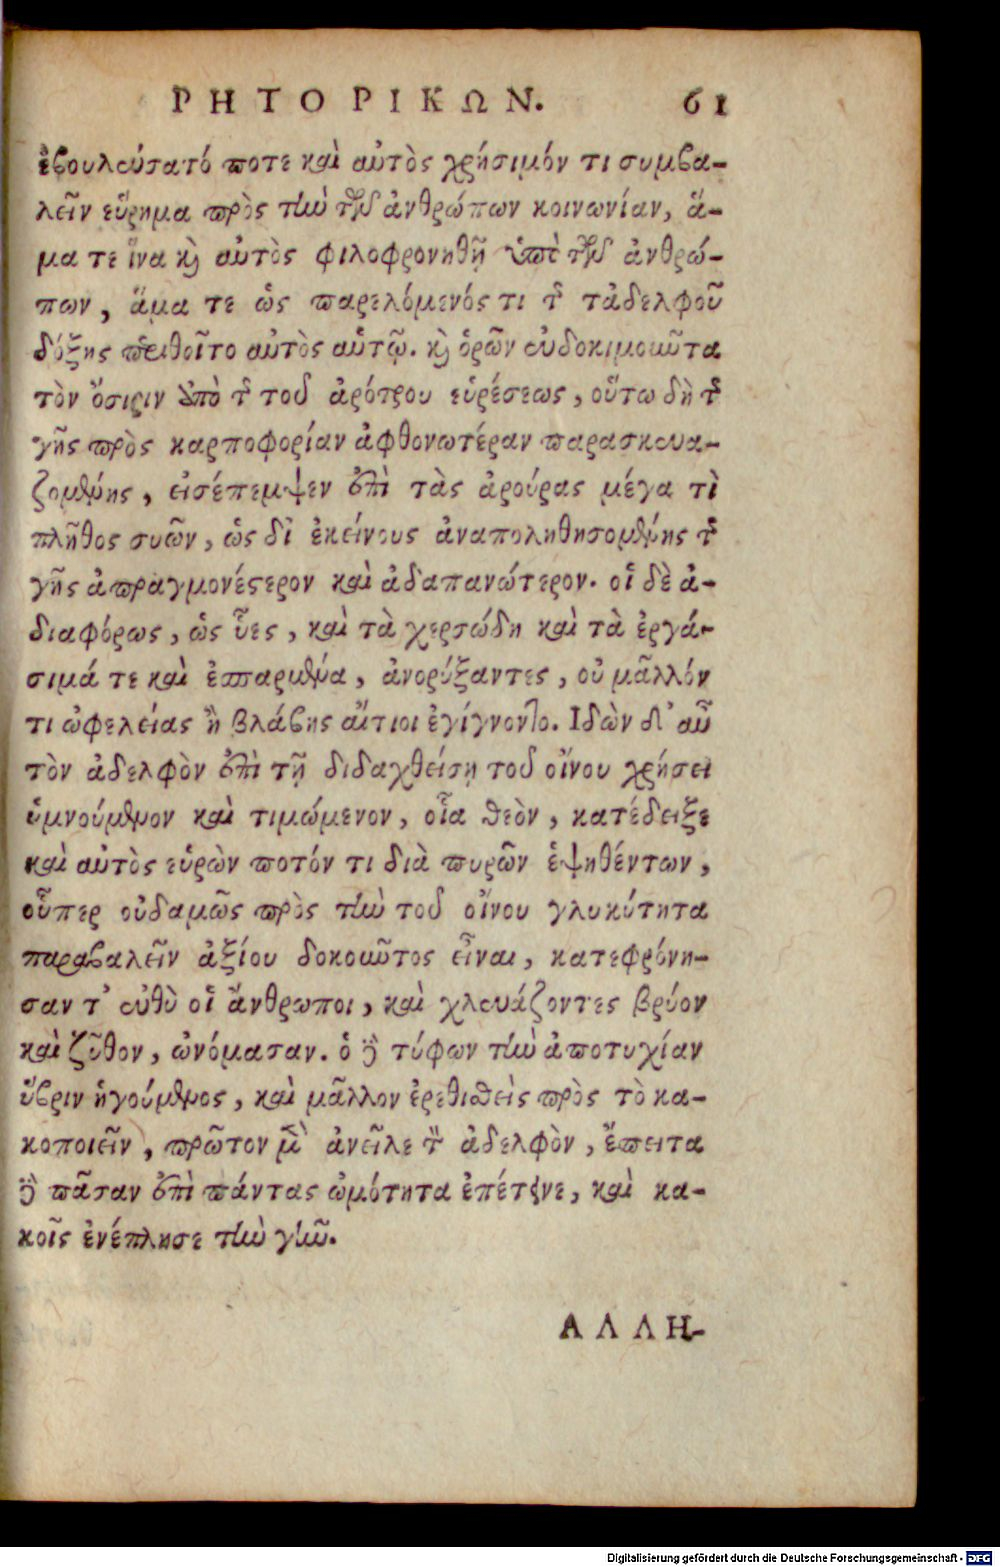 ΡΗΤΟΡΙΚΩΝ. 61
ἐβουλεύσατό ποτε καὶ αὐτὸς χρήσιμόν τι συμβα-
λεῖν εὕρημα πρὸς τὴν τῶν ἀνθρώπων κοινωνίαν, ἅ-
μα τε ἵνα καὶ αὐτὸς φιλοφρονηθῇ ὑπὸ τῶν ἀνθρώ-
πων, ἅμα τε ὡς παρελόμενός τι τῆς τἀδελφοῦ
δόξης πείθοιτο αὐτὸς αὑτῷ. καὶ ὁρῶν εὐδοκιμοῦντα
τὸν ὄσιριν ὑπὸ τῆς τοῦ ἀρότρου εὑρέσεως, οὕτω δὴ τῆς
γῆς πρὸς καρποφορίαν ἀφθονωτέραν παρασκευα-
ζομένης, εἰσέπεμψεν ἐπὶ τὰς ἀρούρας μέγα τὶ
πλῆθος συῶν, ὡς δι ἐκείνους ἀναποληθησομένης τῆς
γῆς ἀπραγμονέστερον καὶ ἀδαπανώτερον. οἱ δὲ ἀ-
διαφόρως, ὡς ὗες, καὶ τὰ χερσώδη καὶ τὰ ἐργά-
σιμά τε καὶ ἐσπαρμένα, ἀνορύξαντες, οὐ μᾶλλόν
τι ὠφελείας ἢ βλάβης αἴτιοι ἐγίγνοντο. Ιδὼν δ' αὖ
τὸν ἀδελφὸν ἐπὶ τῇ διδαχθείσῃ τοῦ οἴνου χρήσει
ὑμνούμενον καὶ τιμώμενον, οἷα θεὸν, κατέδειξε
καὶ αὐτὸς εὑρὼν ποτόν τι διὰ πυρῶν ἑψηθέντων,
οὗπερ οὐδαμῶς πρὸς τὴν τοῦ οἴνου γλυκύτητα
παραβαλεῖν ἀξίου δοκοῦντος εἶναι, κατεφρόνη-
σαν τ' εὐθὺ οἱ ἄνθρωποι, καὶ χλευάζοντες βρύον
καὶ ζῦθον, ὠνόμασαν. ὁ δὲ τύφων τὴν ἀποτυχίαν
ὕβριν ἡγούμενος, καὶ μᾶλλον ἐρεθισθεὶς πρὸς τὸ κα-
κοποιεῖν, πρῶτον μὲν ἀνεῖλε τὸν ἀδελφὸν, ἔπειτα
δὲ πᾶσαν ἐπὶ πάντας ὠμότητα ἐπέτεινε, καὶ κα-
κοῖς ἐνέπλησε τὴν γῆν.
ΑΛΛΗ-
Digitalisierung gefördert durch die Deutsche Forschungsgemeinschaft - DFG